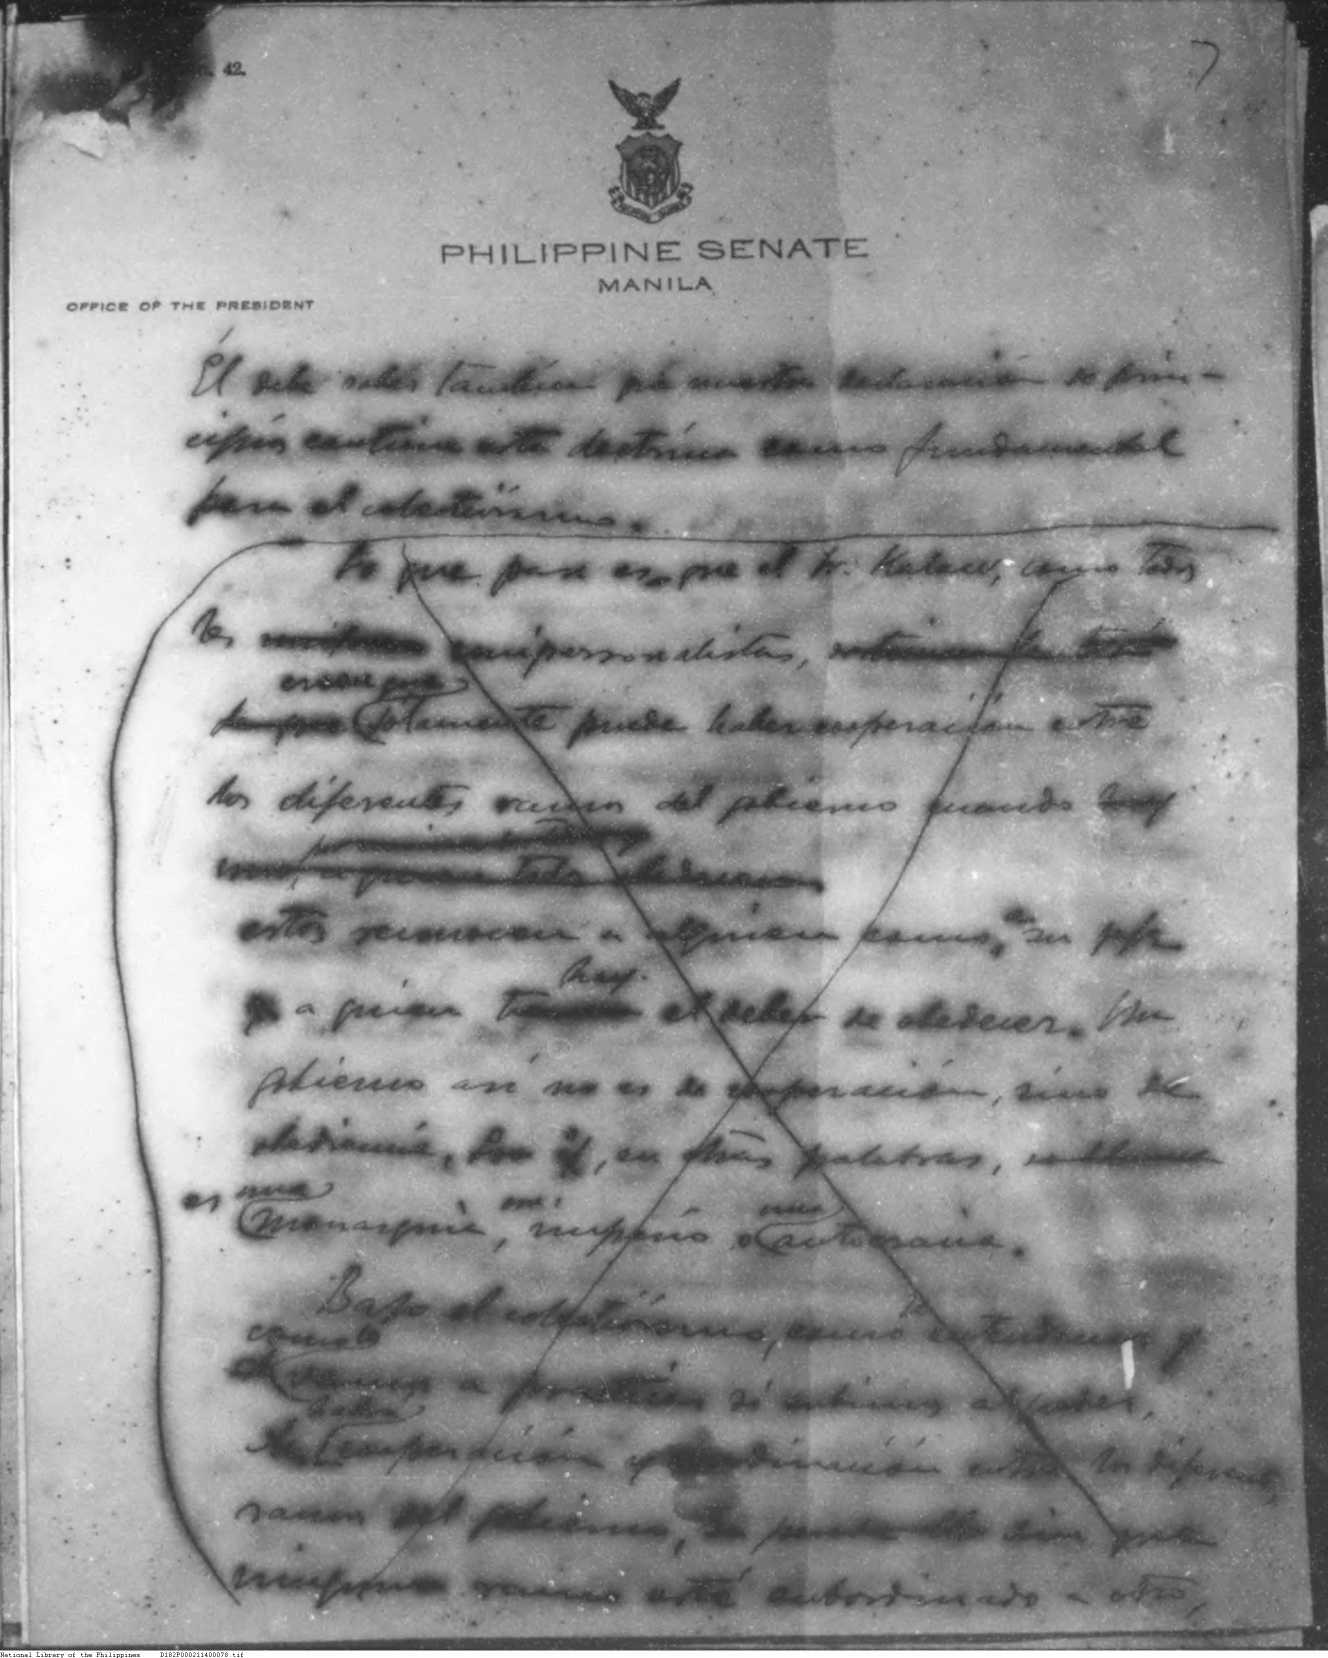 42.
7
PHILIPPINE SENATE
MANILA
OFFICE OF THE PRESIDENT
Él debe saber también que nuestra declaración de prin-
cipios contiene esta doctrina como fundamental
para el colectivismo.
Lo que pasa es que el Sr. Kalaw, como todos
los unipersonalistas,
creen que
solamente puede haber cooperación entre
los diferentes ramos del gobierno cuando hay
estos reconocen a alguien como su jefe
hay
a quien el deber de obedecer. Un
gobierno así no es de cooperación, sino de
obediencia, en otras palabras,
es una
monarquía, un imperio o una autocracia.
Bajo el colectivismo, como lo entendemos y
como lo
vamos a practicar si subimos al poder,
habrá
cooperación y entre los diferentes
ramos del gobierno, sin que
ninguno ramo esté subordinado a otro,
National Library of the Philippines D182P000211400078.tif